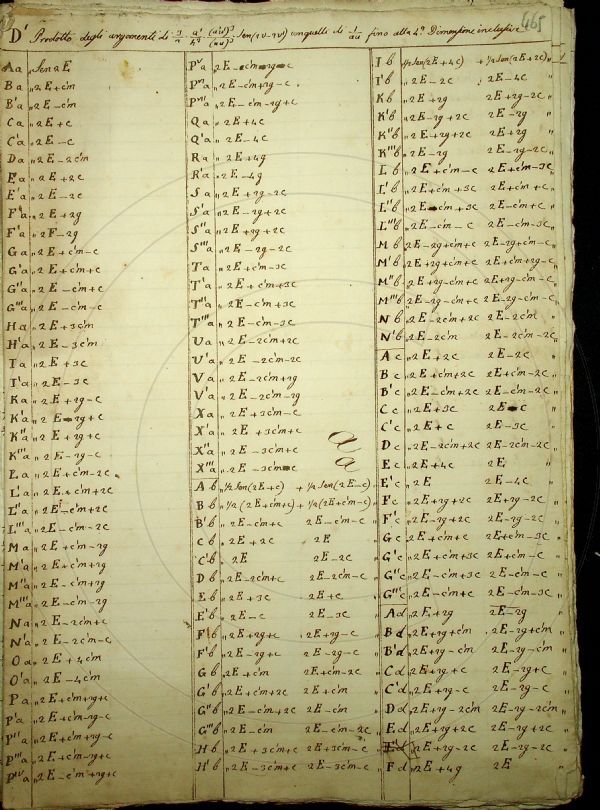 465
D' Prodotto degli argomenti di Sen(2v-2v') con quelli di 1/au fino alla 4a Dimensione inclusive
Aa „ Sen 2E
Ba „ 2E + c'm
B'a „ 2E - c'm
Ca „ 2E + c
C'a „ 2E - c
Da „ 2E - 2c'm
Ea „ 2E + 2c
E'a „ 2E - 2c
Fa „ 2E + 2g
F'a „ 2E - 2g
Ga „ 2E + c'm - c
G'a „ 2E + c'm + c
G''a „ 2E - c'm + c
G'''a „ 2E - c'm - c
Ha „ 2E + 3c'm
H'a „ 2E - 3c'm
Ia „ 2E + 3c
I'a „ 2E - 3c
Ka „ 2E + 2g - c
K'a „ 2E - 2g + c
K''a „ 2E + 2g + c
K'''a „ 2E - 2g - c
La „ 2E + c'm - 2c
L'a „ 2E + c'm + 2c
L''a „ 2E - c'm + 2c
L'''a „ 2E - c'm - 2c
Ma „ 2E + c'm - 2g
M'a „ 2E + c'm + 2g
M''a „ 2E - c'm + 2g
M'''a „ 2E - c'm - 2g
Na „ 2E - 2c'm + c
N'a „ 2E - 2c'm - c
Oa „ 2E + 4c'm
O'a „ 2E - 4c'm
Pa „ 2E + c'm + 2g + c
P'a „ 2E + c'm - 2g - c
P''a „ 2E + c'm + 2g - c
P'''a „ 2E + c'm - 2g + c
P''''a „ 2E - c'm + 2g + c
P'a „ 2E - c'm - 2g - c
P''a „ 2E - c'm + 2g - c
P'''a „ 2E - c'm - 2g + c
Qa „ 2E + 4c
Q'a „ 2E - 4c
Ra „ 2E + 4g
R'a „ 2E - 4g
Sa „ 2E + 2g - 2c
S'a „ 2E - 2g + 2c
S''a „ 2E + 2g + 2c
S'''a „ 2E - 2g - 2c
Ta „ 2E + c'm - 3c
T'a „ 2E + c'm + 3c
T''a „ 2E - c'm + 3c
T'''a „ 2E - c'm - 3c
Ua „ 2E - 2c'm + 2c
U'a „ 2E - 2c'm - 2c
Va „ 2E - 2c'm + 2g
V'a „ 2E - 2c'm - 2g
Xa „ 2E + 3c'm - c
X'a „ 2E + 3c'm + c
X''a „ 2E - 3c'm + c
X'''a „ 2E - 3c'm - c
Ab „ ½ Sen(2E + c) + ½ Sen(2E - c)
Bb „ ½ (2E + c'm + c) + ½ (2E + c'm - c)
B'b „ 2E - c'm + c 2E - c'm - c „
Cb „ 2E + 2c 2E „
C'b „ 2E 2E - 2c „
Db „ 2E - 2c'm + c 2E - 2c'm - c „
Eb „ 2E + 3c 2E + c „
E'b „ 2E - c 2E - 3c „
Fb „ 2E + 2g + c 2E + 2g - c „
F'b „ 2E - 2g + c 2E - 2g - c „
Gb „ 2E + c'm 2E + c'm - 2c „
G'b „ 2E + c'm + 2c 2E + c'm „
G''b „ 2E - c'm + 2c 2E - c'm „
G'''b „ 2E - c'm 2E - c'm - 2c „
Hb „ 2E + 3c'm + c 2E + 3c'm - c „
H'b „ 2E - 3c'm + c 2E - 3c'm - c „
Ib ½ Sen(2E + 4c) + ½ Sen(2E + 2c) „
I'b „ 2E - 2c 2E - 4c „
Kb „ 2E + 2g 2E + 2g - 2c „
K'b „ 2E - 2g + 2c 2E - 2g „
K''b „ 2E + 2g + 2c 2E + 2g „
K'''b „ 2E - 2g 2E - 2g - 2c „
Lb „ 2E + c'm - c 2E + c'm - 3c „
L'b „ 2E + c'm + 3c 2E + c'm + c „
L''b „ 2E - c'm + 3c 2E - c'm + c „
L'''b „ 2E - c'm - c 2E - c'm - 3c „
Mb „ 2E - 2g + c'm + c 2E - 2g + c'm - c „
M'b „ 2E + 2g + c'm + c 2E + c'm + 2g - c „
M''b „ 2E + 2g - c'm + c 2E + 2g - c'm - c „
M'''b „ 2E - 2g - c'm + c 2E - 2g - c'm - c „
Nb „ 2E - 2c'm + 2c 2E - 2c'm „
N'b „ 2E - 2c'm 2E - 2c'm - 2c „
Ac „ 2E + 2c 2E - 2c „
Bc „ 2E + c'm + 2c 2E + c'm - 2c „
B'c „ 2E - c'm + 2c 2E - c'm - 2c „
Cc „ 2E + 3c 2E - c „
C'c „ 2E + c 2E - 3c „
Dc „ 2E - 2c'm + 2c 2E - 2c'm - 2c „
Ec „ 2E + 4c 2E „
E'c „ 2E 2E - 4c „
Fc „ 2E + 2g + 2c 2E + 2g - 2c „
F'c „ 2E - 2g + 2c 2E - 2g - 2c „
Gc „ 2E + c'm + c 2E + c'm - 3c „
G'c „ 2E + c'm + 3c 2E + c'm - c „
G''c „ 2E - c'm + 3c 2E - c'm - c „
G'''c „ 2E - c'm + c 2E - c'm - 3c „
Ad „ 2E + 2g 2E - 2g „
Bd „ 2E + 2g + c'm 2E - 2g + c'm „
B'd „ 2E + 2g - c'm 2E - 2g - c'm „
Cd „ 2E + 2g + c 2E - 2g + c „
C'd „ 2E + 2g - c 2E - 2g - c „
Dd „ 2E + 2g - 2c'm 2E - 2g - 2c'm „
Ed „ 2E + 2g + 2c 2E - 2g + 2c „
E'd „ 2E + 2g - 2c 2E - 2g - 2c „
Fd „ 2E + 4g 2E „